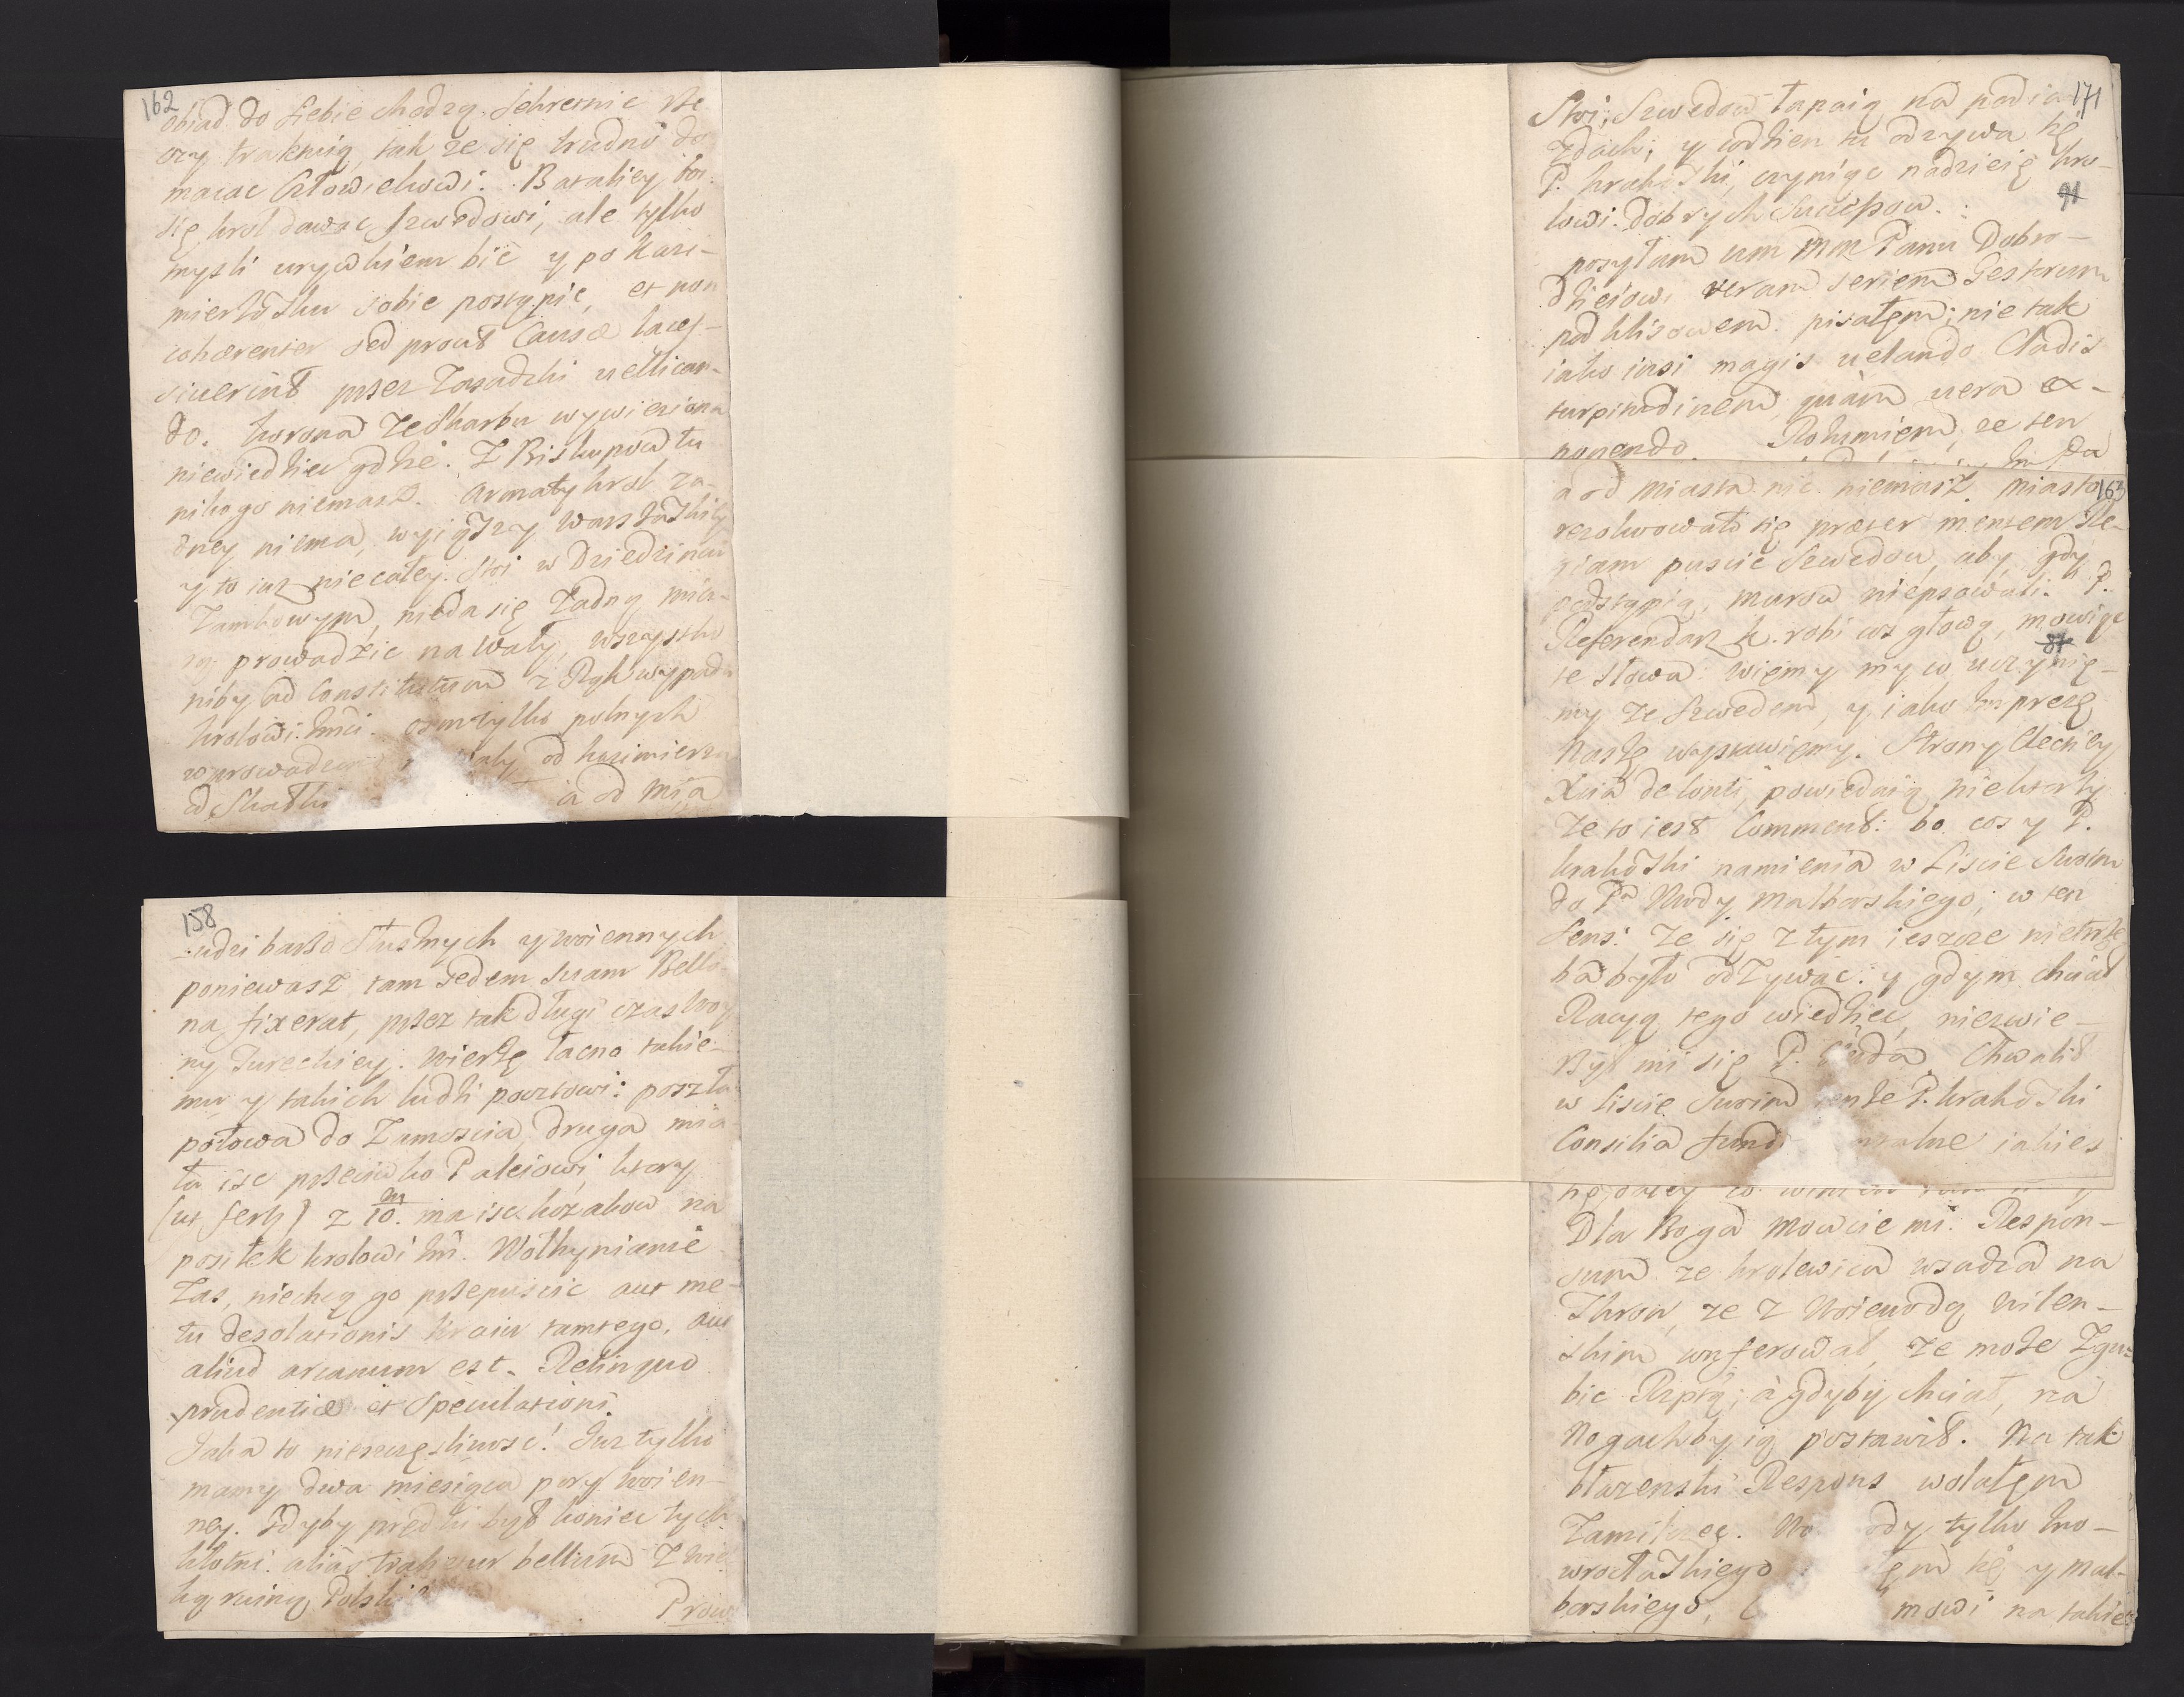 162
obiad do siebie chodzą. Sekretnie rze
czy traktuią, tak ze się trudno do
macac człowiekowi. Bataliey boi
się krol dawac Szwedowi, ale tylko
mysli urywkiem bić y po Kazi-
mierzosku sobie postąpic, et non
cohærenter sed prout Causæ laces-
siverint przez Zasadzki vellican-
do. Korona ze Skarbu wywieziona
niewiedziec gdzie. Z Biskupow tu
nikogo niemasz. Armaty krol za-
dney niema, wyiąwszy Warszawskiey
y to iuz niecałey. Stoi w Dziedzincu
Zamkowym, nieda się żadną mia-
rą prowadzic na wały, wszystko
niby ad Constitutum z Rąk wypada
krolowi Jmci. osm tylko polnych
wprowadzono wały od kazimierza
od Skałki a od mia
158
ludzi barzo słusznych y woiennych
poniewasz tam sedem suam Bello
na fixerat, przez tak długi czas woy
ny Tureckiey. Wierzę łacno takie-
mu y takich ludzi pocztowi: poszła
połowa do Zamoscia, druga mia
ła isc przeciwko Paleiowi, ktory
(ut fert) z 10. m ma isc kozakow na
posiłek krolowi Jmci. Wołhynianie
zas, niechcą go przepuscic aut me-
tu desolationis kraiu tamtego, aut
aliud arcanum est. Relinquo
prudentiæ et speculationi.
Jaka to nieszczęsliwosc! Juz tylko
mamy dwa miesiąca pory woien-
ney. Gdyby prędki był koniec tych
kłotni. aliàs trahetur bellum z wiel
ką ruiną Polski
Prow
171
Stoi; Szwedow łapaią na podia
zdach; y codzien tu odzywa się
P. Krakoski, czyniąc nadzieię kro-
lowi dobrych Successow.
91
posyłam um MM Panu Dobro-
dzieiowi veram seriem Gestorum
pod kliszowem. pisałem; nie tak
iako insi magis velando Cladis
turpitudinem, quàm vera ex-
ponendo. Rozumiem, ze ten
163
a od miasta nic niemasz. Miasto
rezolwowało się præter mentem Re-
giam puscic Szwedow, aby gdy
podstąpią, murow niepsowali. P.
Referendarz K. robi cos głową, mowiąc
81
te słowa: wiemy my co uczynię-
my ze Szwedem, y iako Imprezę
naszę wystawiemy. Strony Elekcyey
Xcia de Conti, powiedaią niektorzy
ze to iest Comment: bo cos y P.
krakoski namienia w Liscie swoim
do Pa Wwdy Malborskiego; w ten
sens: ze się z tym ieszcze nietrze
ba było odzywac: y gdym chciał
Racyą tego wiedziec, niezwie-
rzył mi się P. Wwda. Chwalił
w Liscie swoim tenze P. krakoski
Consilia fund
Dla Boga mowcie mi. Respon-
sum ze krolewica wsadza na
Thron, ze z Woiewodą wilen-
skim
ze moze Zgu-
bic Rzptą; à gdyby chciał, na
Nogachby ią postawił. Na tak
błazenski Respons wolałem
Zamilczec. ody tylko Ino-
wrocłaskiego się y mal-
borskiego, mowi na takie